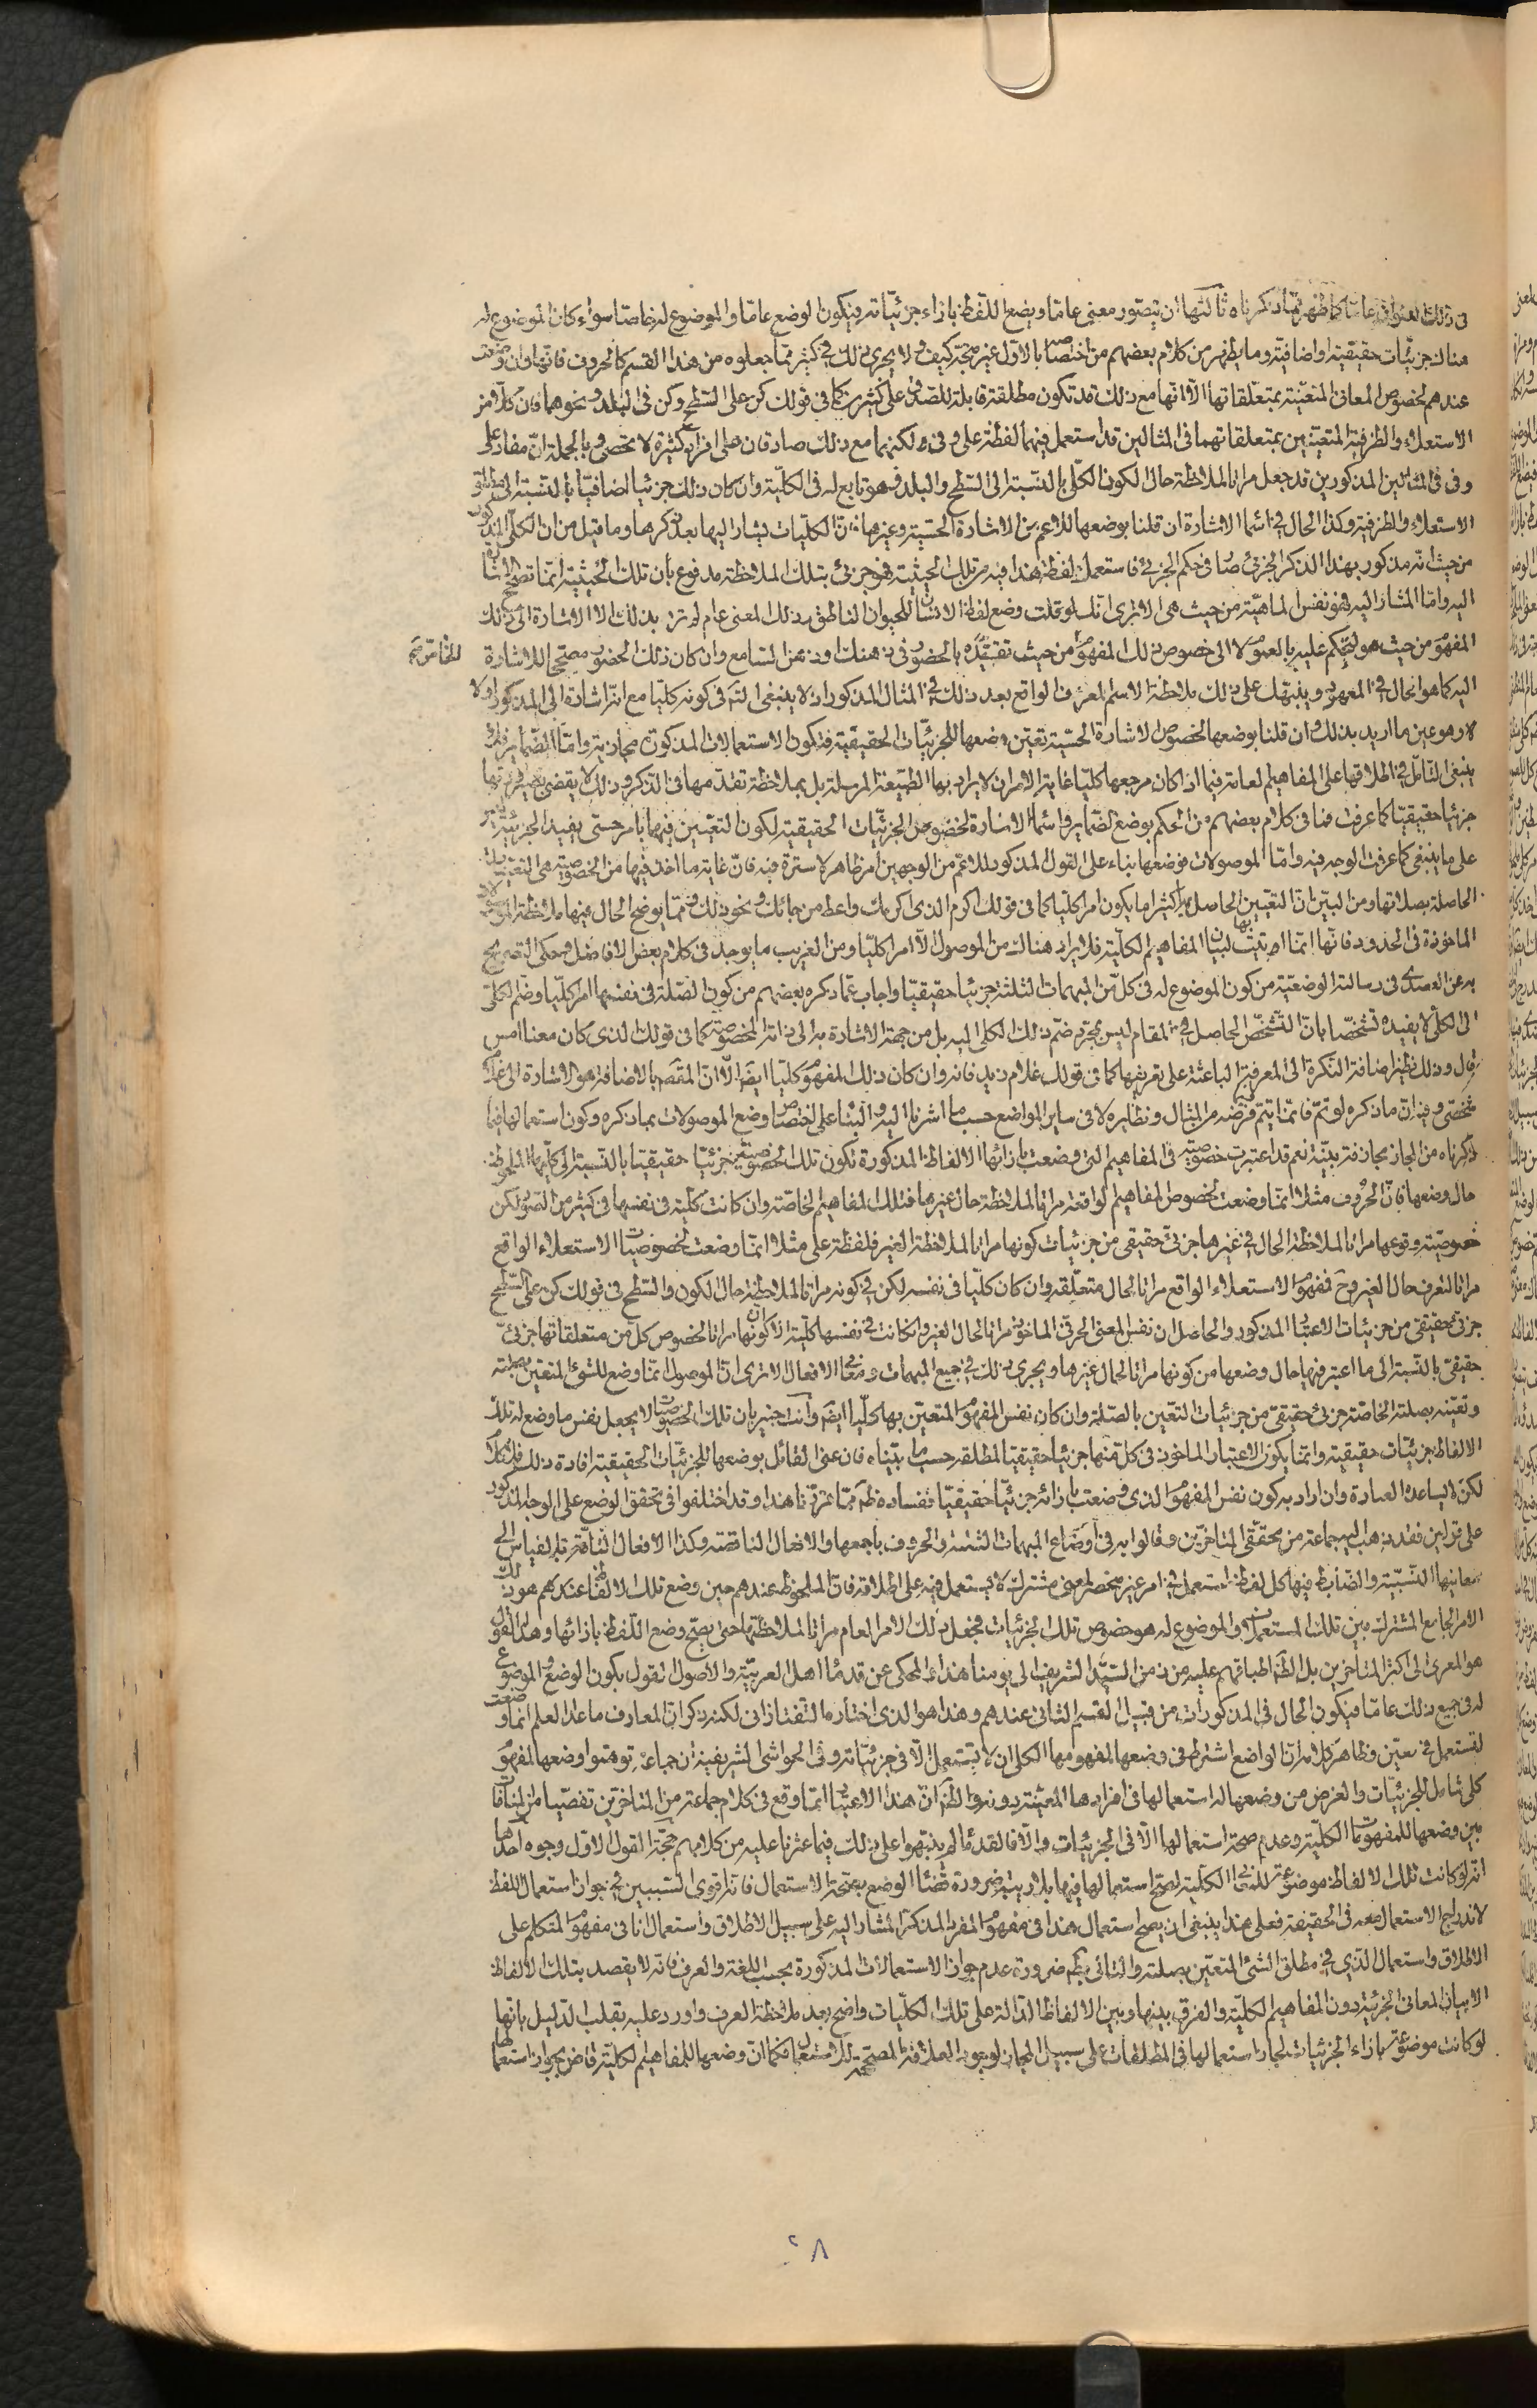 في ذلك العنوان عاما كما ظهر مما ذكرناه ثالثها ان يتصور معنى عاما ويضع اللفظ بازاء جزئياته فيكون الوضع عاما والموضوع له خاصا سواء كان الموضوع له
هناك جزئيات حقيقية او اضافية وما يظهر من كلام بعضهم من اختصاصا بالاول غير متجه كيف ولا يجرى ذلك في كثير مما جعلوه من هذا القسم كالحروف فانها وان وضعت
عندهم لخصوص المعاني المتعينة بمتعلقاتها الا انها مع ذلك قد تكون مطلقة قابلة للصدق على كثيرين كما في قولك كن على السطح وكن في البلد ونحوهما فان كلا من
الاستعلاء والظرفية المتعينين بمتعلقاتهما في المثالين قد استعمل فيهما لفظة على وفي ولكنهما مع ذلك صادقان على افراد كثيرة لا تحصى وبالجملة ان مفاد على
وفي في المثالين المذكورين قد جعل مرآتا لملاحظة حال الكون الكلي بالنسبة الى السطح والبلد فهو تابع له في الكلية وان كان ذلك جزئيا اضافيا بالنسبة الى مطلق
الاستعلاء والظرفية وكذا الحال في اسماء الاشارة ان قلنا بوضعها للاعم من الاشارة الحسية وغيرها فان الكليات يشار اليها بعد ذكرها وما قيل من ان الكلي المذكور
من حيث انه مذكور بهذا الذكر الجزئي صار في حكم الجزئي فاستعمل لفظة هذا فيه من تلك الحيثية فهو جزئي بتلك الملاحظة مدفوع بان تلك الحيثية انما تصحح الاشارة
اليه واما المشار اليه فهو نفس الماهية من حيث هي الا ترى انك لو قلت وضع لفظ الانسان للحيوان الناطق وذلك المعنى عام لم ترد بذلك الا الاشارة الى ذلك
المفهوم من حيث هو لتحكم عليه بالعموم لا الى خصوص ذلك المفهوم من حيث تقيده بالحضور في ذهنك او ذهن السامع وان كان ذلك الحضور مصححا للاشارة
اليه كما هو الحال في المعهود وينبهك على ذلك ملاحظة الاسم المعرف الواقع بعد ذلك في المثال المذكور اذ لا ينبغي التأمل في كونه كليا مع انه اشارة الى المذكور اولا
وهو عين ما اريد بذلك وان قلنا بوضعها لخصوص الاشارة الحسية تعين وضعها للجزئيات الحقيقية فتكون الاستعمالات المذكورة مجازية واما الضمائر فلا
ينبغي التامل في اطلاقها على المفاهيم العامة فيما اذا كان مرجعها كليا غاية الامر ان لا يراد بها الطبيعة المرسلة بل بملاحظة تقدمها في الذكر وذلك لا يقضي بصيرورتها
جزئيا حقيقيا كما عرفت فما في كلام بعضهم من الحكم بوضع الضماير واسماء الاشارة لخصوص الجزئيات الحقيقية لكون التعيين فيها بامر حسي يفيد الجزئية غير
على ما ينبغي كما عرفت الوجه فيه واما الموصولات فوضعها بناء على القول المذكور للاعم من الوجهين امر ظاهر لا سترة فيه فان غاية ما اخذ فيها من الخصوصية هي التعينات
الحاصلة بصلاتها ومن البين ان التعيين الحاصل بها كثيرا ما يكون امرا كليا كما في قولك اكرم الذي اكرمك واعط من جائك ونحو ذلك ومما يوضح الحال فيها ملاحظة الموصولات
الماخوذة في الحدود فانها انما اتيت بها لبيان المفاهيم الكلية فلا يراد هناك من الموصول الا امرا كليا ومن الغريب ما يوجد في كلام بعض الافاضل وحكى التصريح
به عن العضدي في رسالته الوضعية من كون الموضوع له في كل من المبهمات الثلثة جزئيا حقيقيا واجاب عما ذكره بعضهم من كون الصلة في نفسها امرا كليا وضم الكلي
الى الكلي لا يفيد تشخصا بان التشخص الحاصل في المقام ليس بمجرد ضم ذلك الكلي اليه بل من جهة الاشارة به الى ذاته المخصوصة كما في قولك الذي كان معنا امس
قال وذلك نظير اضافة النكرة الى المعرفة الباعثة على تعريفها كما في قولك غلام زيد فانه وان كان ذلك المفهوم كليا ايضا الا ان المقصود بالاضافة هو الاشارة الى غلام
شخصي وفيه ان ما ذكره لو تم فانما يتم فيما فرضه من المثال ونظايره لا في ساير المواضع حسب ما اشرنا اليه والبناء على اختصاص وضع الموصولات بما ذكره وكون استعمالها فيما
ذكرناه من المجاز مجازفة بينة نعم قد اعتبرت خصوصية في المفاهيم التي وضعت بازائها الالفاظ المذكورة تكون تلك الخصوصية جزئيا حقيقيا بالنسبة الى كليها الملحوظة
حال وضعها فان الحروف مثلا انما وضعت لخصوص المفاهيم الواقعة مرآتا لملاحظة حال غيرها فتلك المفاهيم الخاصة وان كانت كلية في نفسها في كثير من الصور لكن
خصوصية وقوعها مرآتا لملاحظة الحال في غيرها جزئي حقيقي من جزئيات كونها مرآتا لملاحظة الغير فلفظة على مثلا انما وضعت لخصوصيات الاستعلاء الواقع
مرآتا لتعرف حال الغير وح فمفهوم الاستعلاء الواقع مرآتا لحال متعلقه وان كان كليا في نفسه لكن في كونه مرآتا لملاحظة حال الكون والسطح في قولك كن على السطح
جزئي حقيقي من جزئيات الاعتبار المذكور والحاصل ان نفس المعنى الحرفي الماخوذ مرآتا لحال الغير وان كانت في نفسها كلية الا ان كونها مرآتا لخصوص كل من متعلقاتها جزئي
حقيقي بالنسبة الى ما اعتبر فيها حال وضعها من كونها مرآتا لحال غيرها ويجرى ذلك في جميع المبهمات ومعاني الافعال الا ترى ان الموصول انما وضع للشيء المتعين بصلته
وتعينه بصلته الخاصة جزئي حقيقي من جزئيات التعين بالصلة وان كان نفس المفهوم المتعين بها كليا ايضا وانت خبير بان تلك الخصوصيات لا يجعل نفس ما وضع له تلك
الالفاظ جزئيات حقيقية وانما يكون الاعتبار الماخوذ في كل منها جزئيا حقيقيا لمطلقه حسب ما بيناه فان عنى القائل بوضعها للجزئيات الحقيقية افادة ذلك فلا كلام
لكن لا يساعده العبارة وان اراد به كون نفس المفهوم الذي وضعت بازائه جزئيا حقيقيا ففساده ظاهر مما قررنا هذا وقد اختلفوا في تحقق الوضع على الوجه المذكور
على قولين فقد ذهب اليه جماعة من محققي المتاخرين وقالوا به في اوضاع المبهمات الثلثة والحروف باجمعها والافعال الناقصة وكذا الافعال التامة بالقياس الى
معانيها النسبية والضابط فيها كل لفظ استعمل في امر غير منحصر لمعنى مشترك لا يستعمل فيه على اطلاقه فان الملحوظ عندهم حين وضع تلك الالفاظ عندهم هو ذلك
الامر الجامع المشترك بين تلك المستعمل فيها والموضوع له هو خصوص تلك الجزئيات فجعل ذلك الامر العام مرآتا لملاحظتها حتى يصح وضع اللفظ بازائها وهذا القول
هو المعزى الى اكثر المتاخرين بل الظاهر اطباقهم عليه من زمن السيد الشريف الى يومنا هذا والمحكى عن قدماء اهل العربية والاصول القول بكون الوضع والموضوع
له في جميع ذلك عاما فيكون الحال في المذكورات من قبيل القسم الثاني عندهم وهذا هو الذي اختاره التفتازاني لكنه ذكر ان المعارف ما عدا العلم انما وضعت
لتستعمل في معين وظاهر كلامه ان الواضع اشترط في وضعها لمفهومها الكلي ان لا يستعمل الا في جزئياته وفي الحواشي الشريفية ان جماعة توهموا وضعها لمفهوم
كلي شامل للجزئيات والغرض من وضعها له استعمالها في افرادها المعينة دونه والظاهر ان هذا الاعتبار انما وقع في كلام جماعة من المتاخرين تفصيا من المنافات
بين وضعها للمفهومات الكلية وعدم صحة استعمالها الا في الجزئيات والا فالقدماء لم ينبهوا على ذلك فيما عثرنا عليه من كلامهم حجة القول الاول وجوه احدها
انه لو كانت تلك الالفاظ موضوعة للمعاني الكلية لصح استعمالها فيها بلا ريب ضرورة قضاء الوضع بصحة الاستعمال فانه اقوى السببين في جواز استعمال اللفظ
لاندراج الاستعمال معه في الحقيقة فعلى هذا ينبغي ان يصح استعمال هذا في مفهوم المفرد المذكر المشار اليه على سبيل الاطلاق واستعمال انا في مفهوم المتكلم على
الاطلاق واستعمال الذي في مطلق الشيء المتعين بصلته والتالي بط ضرورة عدم جواز الاستعمالات المذكورة بحسب اللغة والعرف فانه لا يقصد بتلك الالفاظ
الا بيان المعاني الجزئية دون المفاهيم الكلية والفرق بينها وبين الالفاظ الدالة على تلك الكليات واضح بعد ملاحظة العرف واورد عليه بقلب الدليل بانها
لو كانت موضوعة بازاء الجزئيات لجاز استعمالها في المطلقات على سبيل المجاز لوجود العلاقة المصححة للاستعمال فكما ان وضعها للمفاهيم الكلية قاض بجواز استعمالها
٢٨